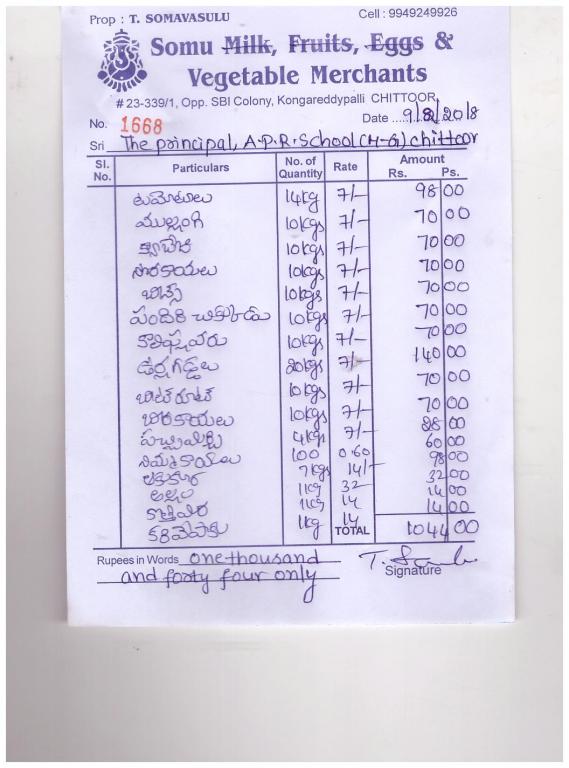 Prop : T. SOMAVASULU Cell : 9949249926
Somu Milk, Fruits, Eggs &
Vegetable Merchants
# 23-339/1, Opp. SBI Colony, Kongareddypalli CHITTOOR
No. 1668 Date ....9/8/2018
Sri The principal, A.P.R.School(M-G) chittoor
Sl. No. Particulars No. of Quantity Rate Amount Rs. Ps.
టమోటాలు 14kg 7/- 98 00
ముల్లంగి 10kgs 7/- 70 00
క్యాబేజి 10kgs 7/- 70 00
సొరకాయలు 10kgs 7/- 70 00
బీన్స్ 10kgs 7/- 70 00
పందిరి చిక్కుడు 10kgs 7/- 70 00
కాలిఫ్లవరు 10kgs 7/- 70 00
ఉర్లగడ్డలు 20kgs 7/- 140 00
బీట్‌రూట్ 10kgs 7/- 70 00
బీరకాయలు 10kgs 7/- 70 00
పచ్చిమిర్చి 4kgs 7/- 28 00
నిమ్మకాయలు 100 0.60 60 00
7kgs 14/- 98 00
అల్లం 1kg 32 32 00
కొత్తిమిర 1kg 14 14 00
కరివేపాకు 1kg 14 14 00
TOTAL 1044 00
Rupees in Words one thousand
and forty four only
Signature